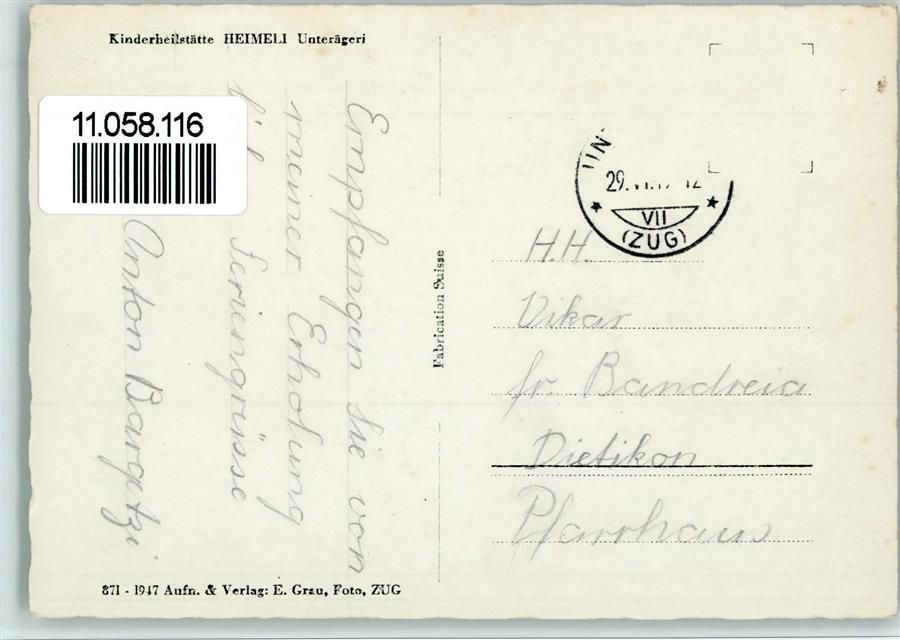 Kinderheilstätte HEIMELI Unterägeri
11.058.116
Empfangen Sie von
meiner Erholung
Feriengrüsse
Anton Bargetzi
Fabrication Suisse
UN
29. VI.
12
VII
(ZUG)
H.H.
Vikar
fr. Bandreia
Dietikon
Pfarrhaus
871 - 1947 Aufn. & Verlag: E. Grau, Foto, ZUG